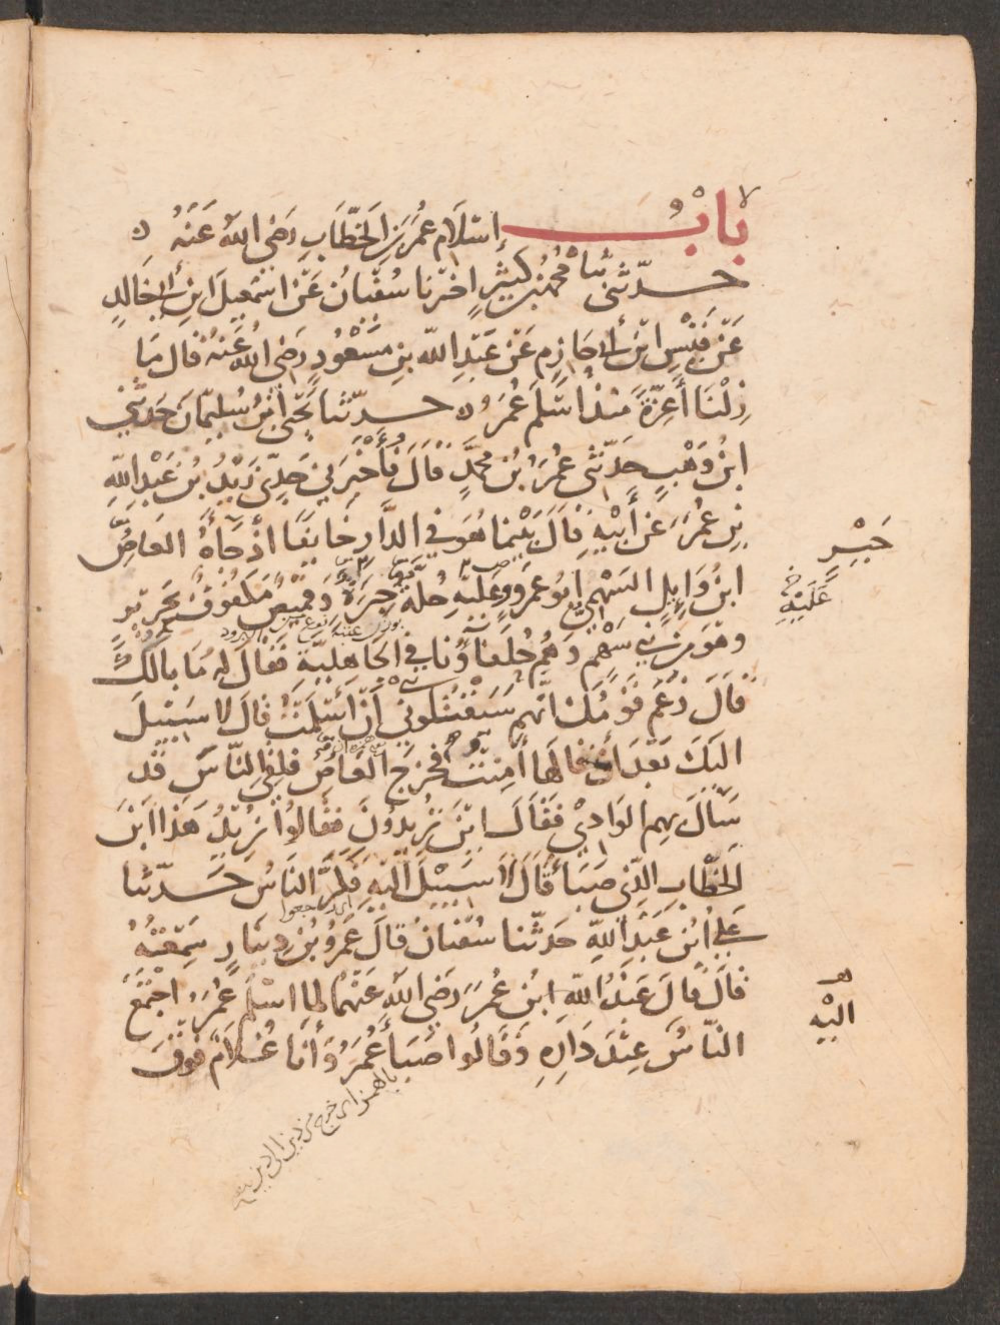 باب إسلام عمر بن الخطاب رضي الله عنه
حدثني محمد بن كثير اخبرنا سفيان عن اسمعيل ابن أبي خالد
عن قيس ابن أبي حازم عن عبد الله بن مسعود رضي الله عنه قال ما
زلنا أعزة منذ اسلم عمر حدثنا يحيى ابن سليمان حدثني
ابن وهب حدثني عمر بن محمد قال فأخبرني جدي زيد بن عبد الله
بن عمر عن أبيه قال بينما هو في الدار خايفا اذ جاءه العاص
ابن وايل السهمي ابو عمرو وعليه حلة حبرة وقميص مكفوف بحرير
وهو من بني سهم وهم حلفاؤنا في الجاهلية فقال له ما بالك
قال زعم قومك انهم سيقتلوني أن اسلمت قال لا سبيل
اليك بعد أن قالها أمنت فخرج العاص فلقي الناس قد
سال بهم الوادي فقال اين تريدون فقالوا نريد هذا ابن
الخطاب الذي صبأ قال لا سبيل اليه فكر الناس حدثنا
علي ابن عبد الله حدثنا سفيان قال عمرو بن دينار سمعته
قال قال عبد الله ابن عمر رضي الله عنهما لما اسلم عمر اجتمع
الناس عند داره وقالوا صبأ عمر وأنا غلام فوق
حبر
عليه
اي رجعوا
اليه
بالهمز اي خرج من دين الى دين